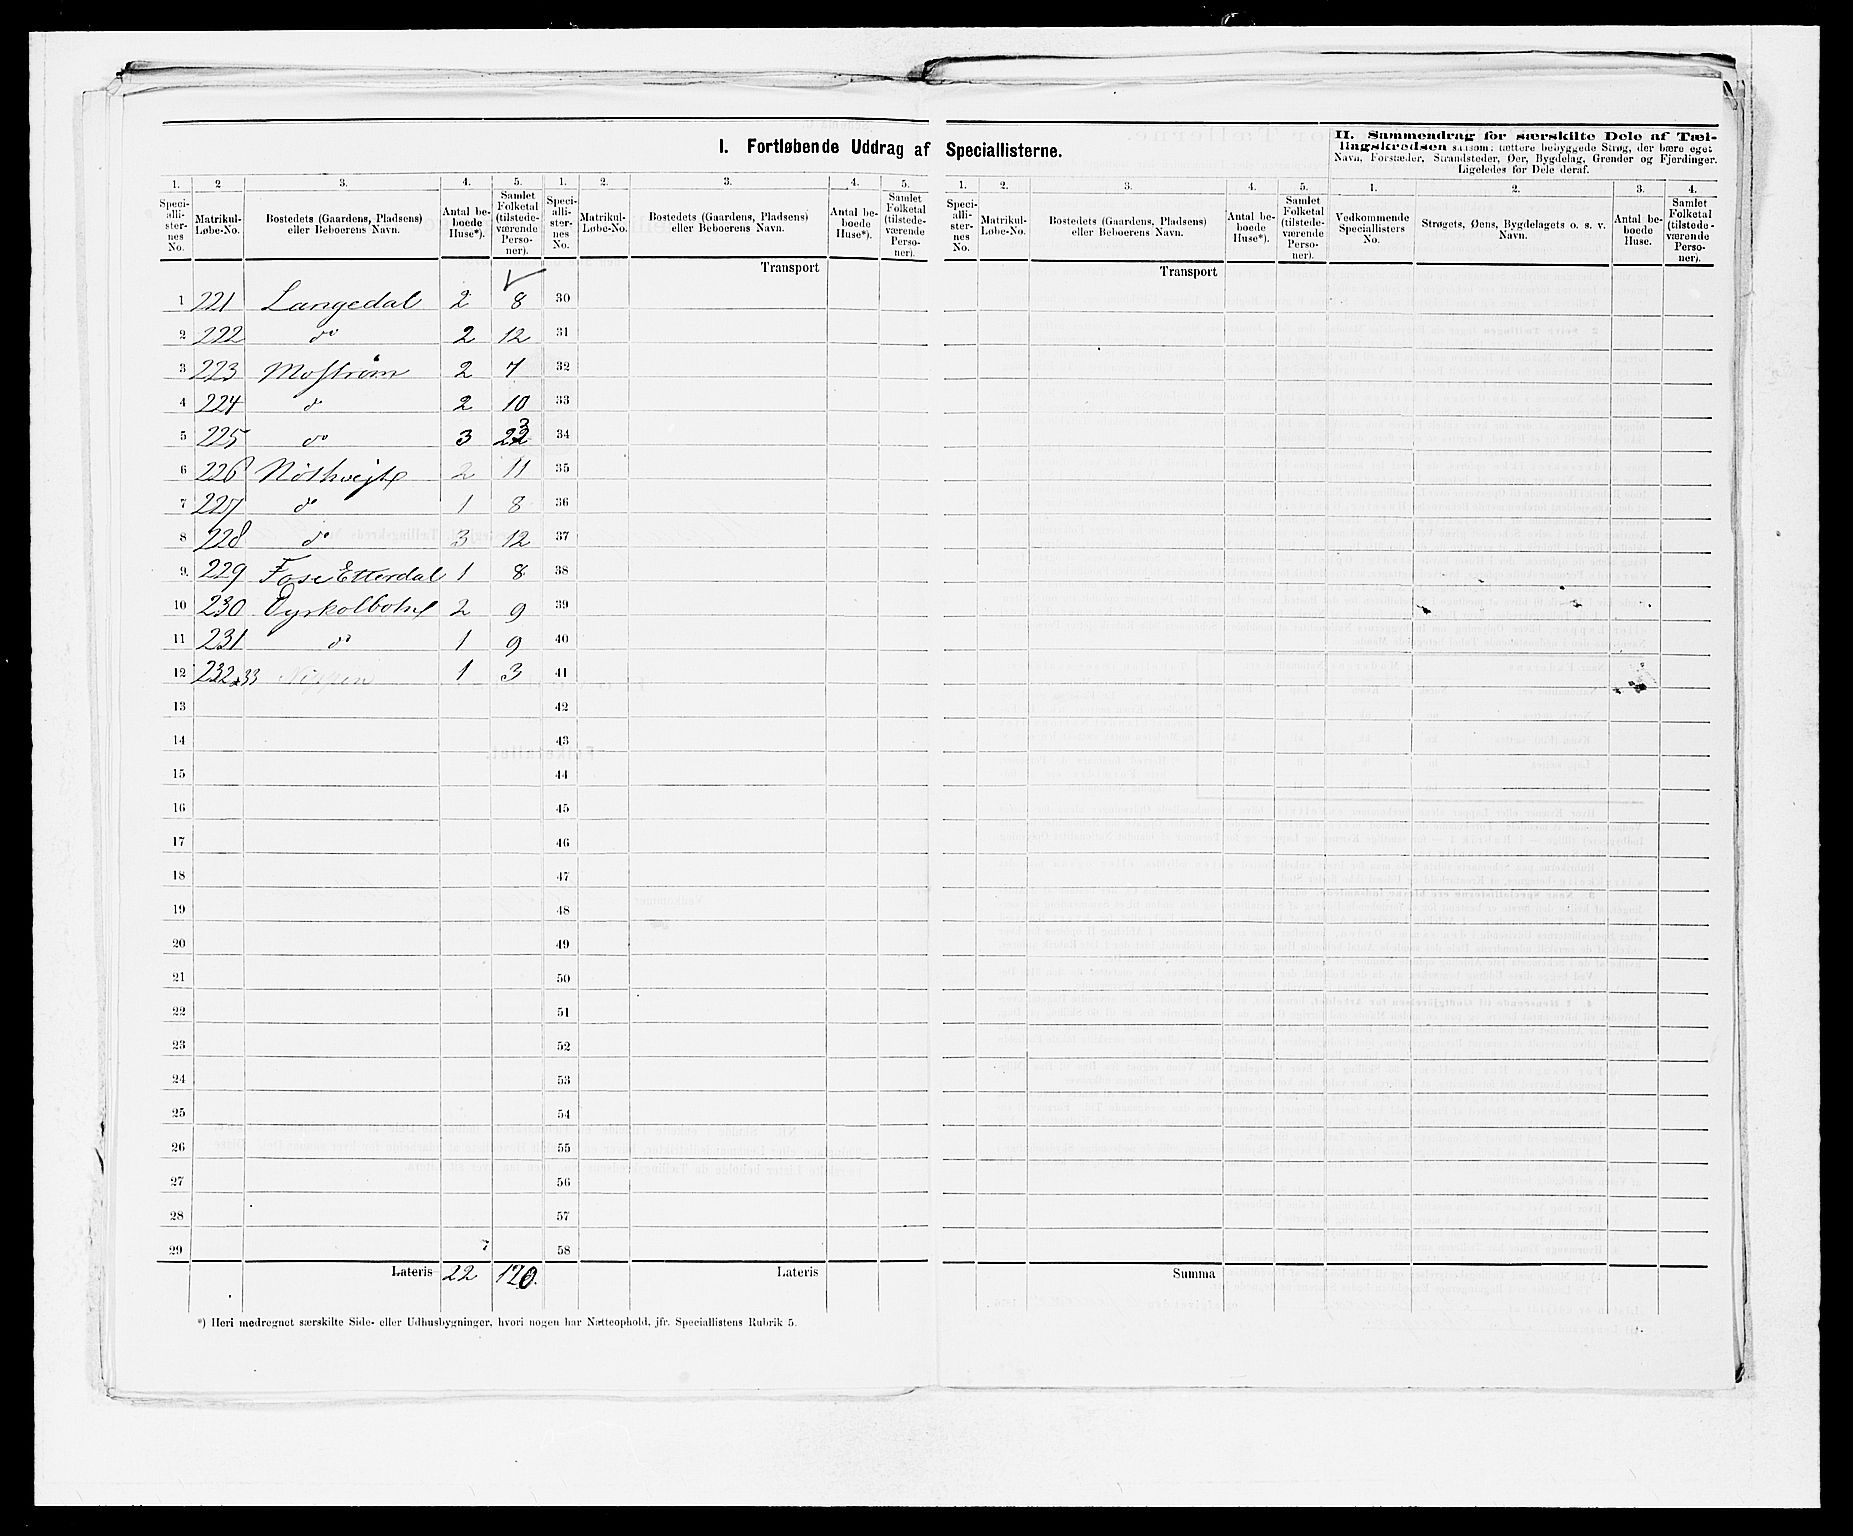 I. Fortløbende Uddrag af Speciallisterne.
II. Sammendrag for særskilte Dele af Tællingskredsen saasom: tættere bebyggede Strøg, der bære eget Navn, Forstæder, Strandsteder, Øer, Bygdelag, Grender og Fjerdinger. Ligeledes for Dele deraf.
1. 2 3. 4. 5. 1. 2. 3. 4. 5. 1. 2. 3. 4. 5. 1. 2. 3. 4.
Speciallisternes No. Matrikul-Løbe-No. Bostedets (Gaardens, Pladsens) eller Beboerens Navn. Antal beboede Huse*). Samlet Folketal (tilstedeværende Personer).
Speciallisternes No. Matrikul-Løbe-No. Bostedets (Gaardens, Pladsens) eller Beboerens Navn. Antal beboede Huse*). Samlet Folketal (tilstedeværende Personer).
Speciallisternes No. Matrikul-Løbe-No. Bostedets (Gaardens, Pladsens) eller Beboerens Navn. Antal beboede Huse*). Samlet Folketal (tilstedeværende Personer).
Vedkommende Speciallisters No. Strøgets, Øens, Bygdelagets o. s. v. Navn. Antal beboede Huse. Samlet Folketal (tilstedeværende Personer).
Transport Transport
1 221 Langedal 2 8 30
2 222 do 2 12 31
3 223 Mostrøm 2 7 32
4 224 d 2 10 33
5 225 do 3 23 34
6 226 2 11 35
7 227 do 1 8 36
8 228 do 3 12 37
9. 229 Fose Etterdal 1 8 38
10 230 Dyrkolbotn 2 9 39
11 231 do 1 9 40
12 232 1 3 41
13 42
14 43
15 44
16 45
17 46
18 47
19 48
20 49
21 50
22 51
23 52
24 53
25 54
26 55
27 56
28 57
29 58
Lateris 22 120. Lateris Summa
*) Heri medregnet særskilte Side- eller Udhusbygninger, hvori nogen har Natteophold, jfr. Speciallistens Rubrik 5.